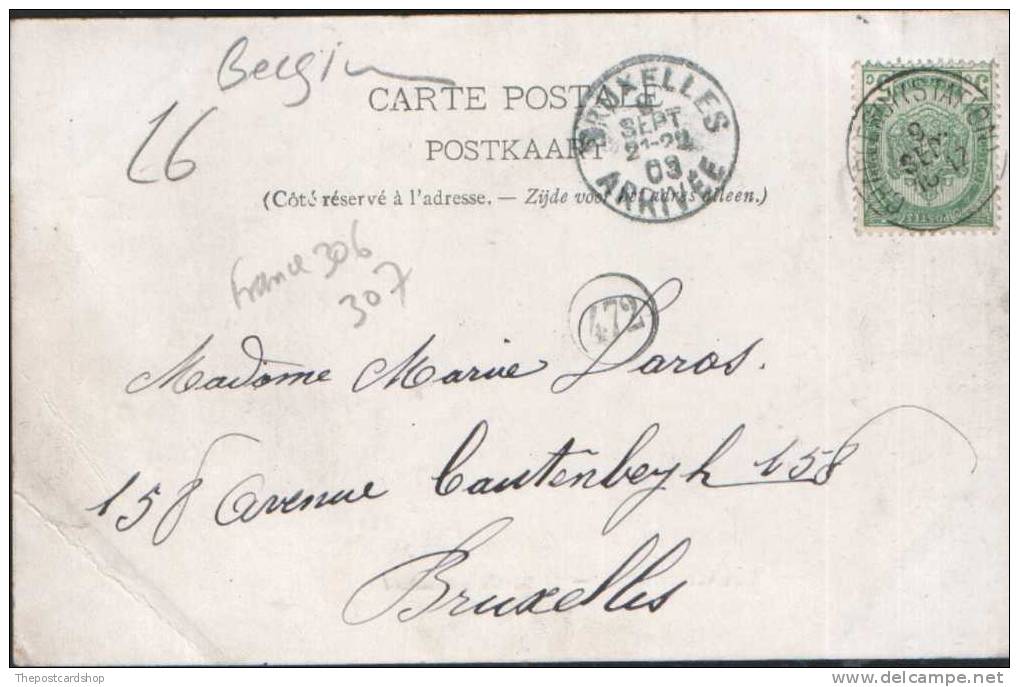 Belgium
CARTE POSTALE
POSTKAART
(Côté réservé à l'adresse. — Zijde voor het adres alleen.)
BRUXELLES
SEPT
21-22
03
ARRIVÉE
9
SEPT
POSTES
france 306
307
472
Madame Marie Daros.
158 avenue Cautenbegh 158
Bruxelles
© Thepostcardshop
delcampe.net